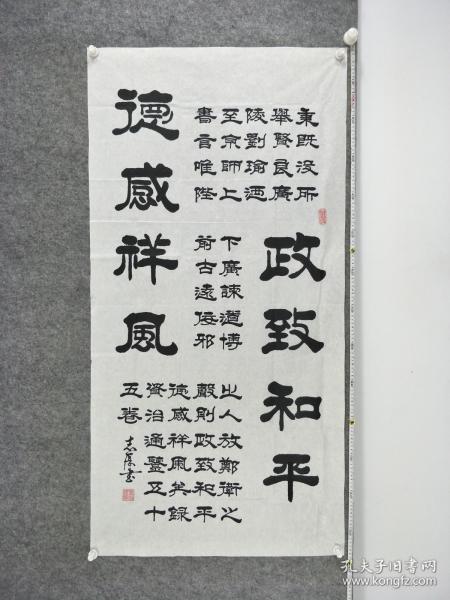 政致和平
德感祥風
秉既没所
舉賢良廣
陵劉瑜迺
至京師上
書言唯陛
下廣諫道博
前古遠佞邪
之人放鄭衛之
聲則政致和平
德感祥風矣錄
資治通鑒五十
五卷
志 書
孔夫子旧书网
www.kongfz.com